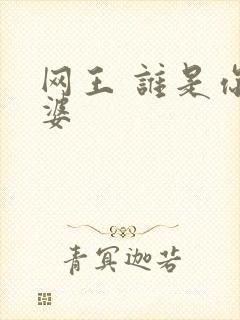 网王 誰是你
婆
青冥迦若